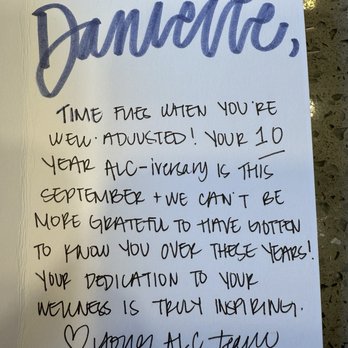 Danielle,
TIME FLIES WHEN YOU'RE
WELL-ADJUSTED! YOUR 10
YEAR ALC-iversary IS THIS
SEPTEMBER + WE CAN'T BE
MORE GRATEFUL TO HAVE GOTTEN
TO KNOW YOU OVER THESE YEARS!
YOUR DEDICATION TO YOUR
WELLNESS IS TRULY INSPIRING.
♡ your ALC team